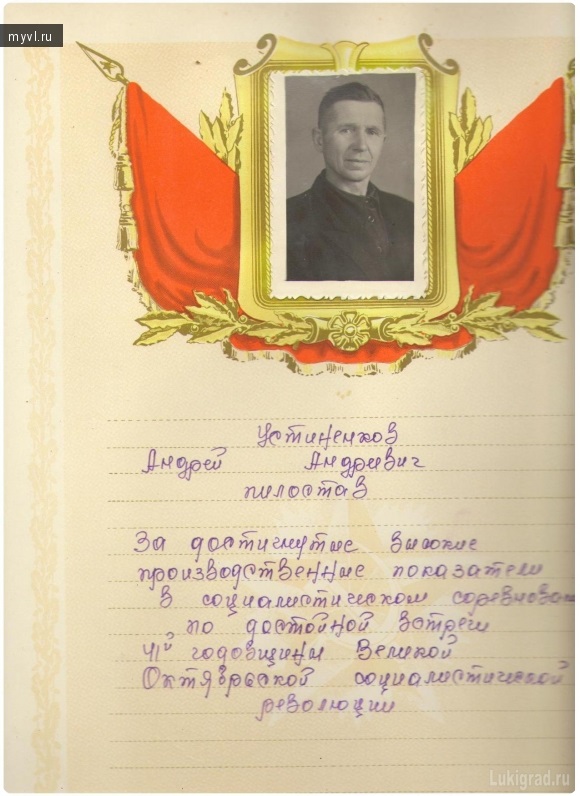 myvl.ru
Устиненков
Андрей Андревич
пилостав
За достигнутые высокие
производственные показатели
в социалистическом соревнова
по достойной встречи
41й годовщины Великой
Октябрьской социалистической
революции
Lukigrad.ru